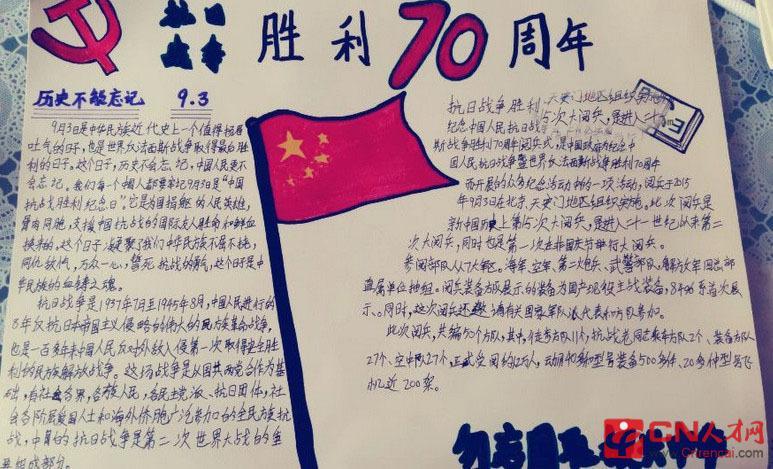 抗日
战争
胜利70周年
历史不能忘记 9.3
9月3日是中华民族近代史上一个值得扬眉
吐气的日子,也是世界反法西斯战争取得最后胜
利的日子。这个日子,历史不会忘记,中国人民更不
会忘记。我们每一个中国人都要牢记9月3日是"中国
抗战胜利纪念日"。它是为国捐躯的人民英雄,
骨肉同胞,支援中国抗战的国际友人用生命和鲜血
换来的。这个日子,凝聚了我们中华民族不屈不挠,
同仇敌忾,万众一心,誓死抗战的勇气,这个日子是中
华民族的血铸之魂。
抗日战争是1937年7月至1945年8月,中国人民进行的
8年反抗日本帝国主义侵略的伟大的民族革命战争,
也是一百多年来中国人民反对外敌入侵第一次取得完全胜
利的民族解放战争。这场战争是以国共两党合作为基
础,有社会各界,各族人民,各民主党派、抗日团体,社
会各阶层爱国人士和海外侨胞广泛参加的全民族抗
战,中国的抗日战争是第二次世界大战的重
要组成部分。
抗日战争胜利
纪念中国人民抗日战
斯战争胜利70周年阅兵式,是中国政府为纪念中
国人民抗日战争暨世界反法西斯战争胜利70周年
而开展的众多纪念活动中的一次活动,阅兵于2015
年9月3日在北京,天安门地区组织实施。此次阅兵是
新中国历史上第15次大阅兵,是进入二十一世纪以来第二
次大阅兵,同时也是第一次在非国庆节举行大阅兵。
参阅部队从7大军区。海军、空军、第二炮兵、武警部队、解放军四总部
直属单位抽组。阅兵装备方队展示的装备为国产现役主战装备,84%系首次展
示。同时,这次阅兵还邀请有关国家军队派代表和方队参加。
此次阅兵,共编50个方队,其中,徒步方队11个,抗战老同志乘车方队2个、装备方队
27个、空中梯队10个,正式受阅约1.2万人,动用40多种型号装备500多件、20多种型号飞
机近200架。
勿忘国耻
CN人才网
www.CNrencai.com